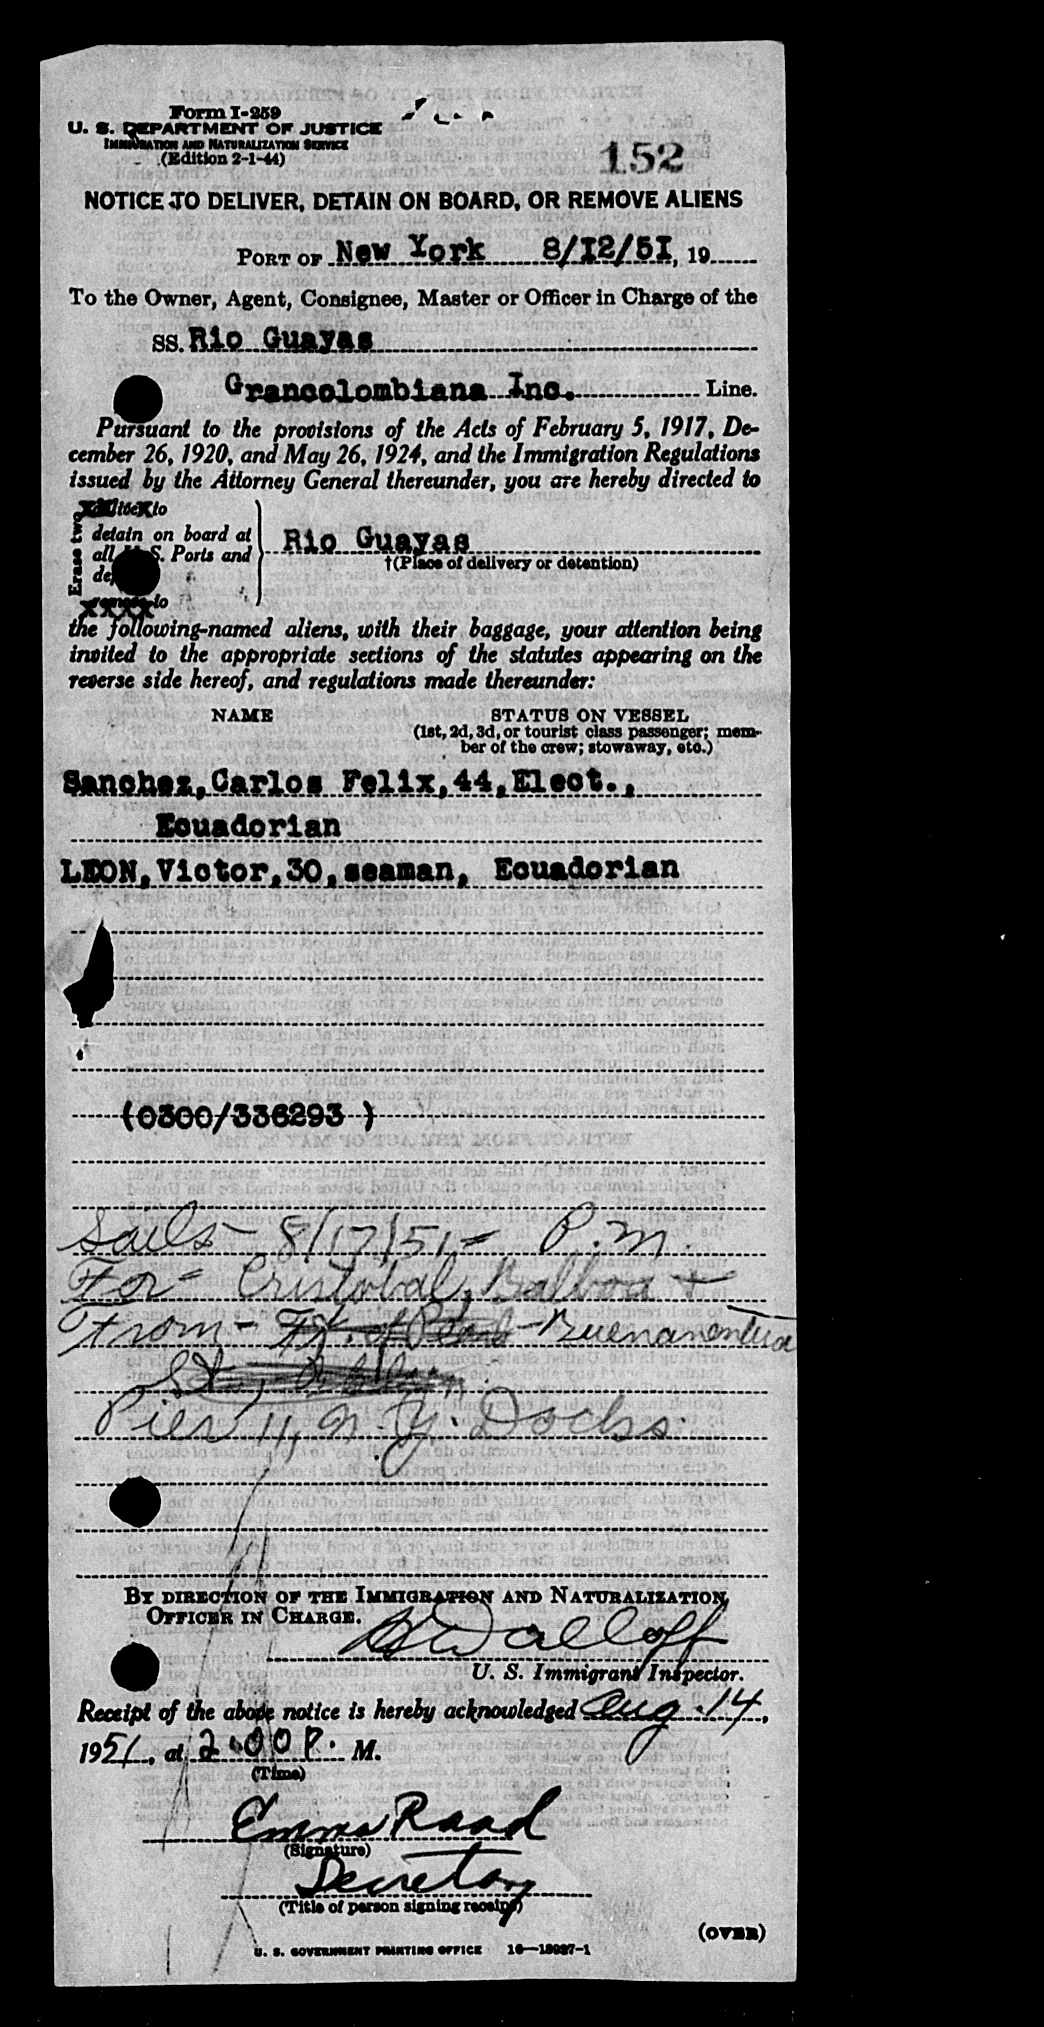 Form I-259
U. S. DEPARTMENT OF JUSTICE
IMMIGRATION AND NATURALIZATION SERVICE
(Edition 2-1-44)
152
NOTICE TO DELIVER, DETAIN ON BOARD, OR REMOVE ALIENS
PORT OF New York 8/I2/5I, 19
To the Owner, Agent, Consignee, Master or Officer in Charge of the
SS. Rio Guayas
Grancolombiana Inc. Line.
Pursuant to the provisions of the Acts of February 5, 1917, De-
cember 26, 1920, and May 26, 1924, and the Immigration Regulations
issued by the Attorney General thereunder, you are hereby directed to
Erase two
to
detain on board at
all U. S. Ports and
de
remove to
Rio Guayas
†(Place of delivery or detention)
the following-named aliens, with their baggage, your attention being
invited to the appropriate sections of the statutes appearing on the
reverse side hereof, and regulations made thereunder:
NAME STATUS ON VESSEL
(1st, 2d, 3d, or tourist class passenger; mem-
ber of the crew; stowaway, etc.)
Sanchez, Carlos Felix, 44, Elect.,
Ecuadorian
LEON, Victor, 30, seaman, Ecuadorian
(0300/336293 )
Sails - 8/17/51 - P.M.
For - Cristobal, Balboa +
From - Buenaventura
Pier 11, N.Y. Docks.
BY DIRECTION OF THE IMMIGRATION AND NATURALIZATION
OFFICER IN CHARGE.
U. S. Immigrant Inspector.
Receipt of the above notice is hereby acknowledged Aug. 14,
1951, at 2:00 P. M.
(Time)
Emma Raad
(Signature)
Secretary
(Title of person signing receipt)
(OVER)
U. S. GOVERNMENT PRINTING OFFICE 16—13987-1